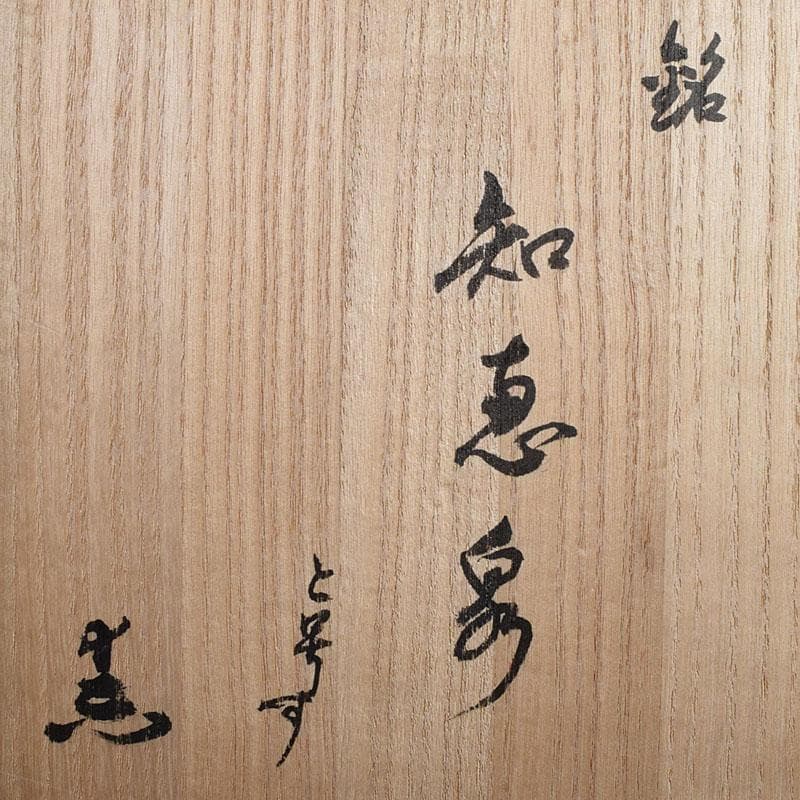 銘
知恵泉
と号す